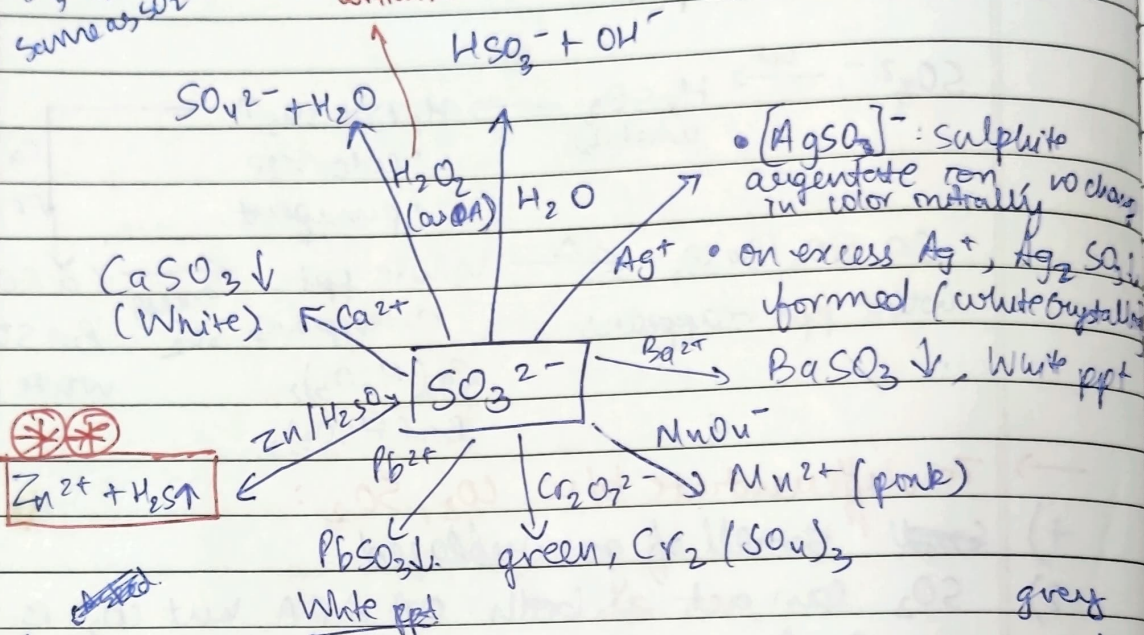 same as SO2
HSO3⁻ + OH⁻
SO4²⁻ + H2O
H2O2
(as OA)
H2O
• [AgSO3]⁻ : Sulphite
argentate ion, no change
in color initially
Ag⁺
• on excess Ag⁺, Ag2SO3↓
formed (white crystalline
CaSO3↓
(White)
Ca²⁺
SO3²⁻
Ba²⁺
BaSO3↓, White ppt
Zn/H2SO4
Zn²⁺ + H2S↑
Pb²⁺
PbSO3↓
White ppt
Cr2O7²⁻
green, Cr2(SO4)3
MnO4⁻
Mn²⁺ (pink)
grey